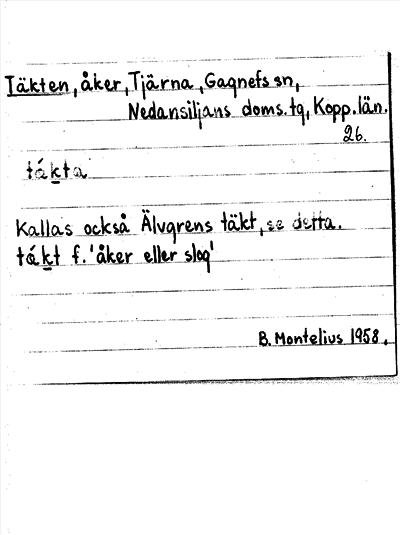 Täkten, åker, Tjärna, Gagnefs sn,
Nedansiljans doms. tg, Kopp. län.
26.
tákta
Kallas också Älvgrens täkt, se detta.
tákt f. 'åker eller slog'
B. Montelius 1958.